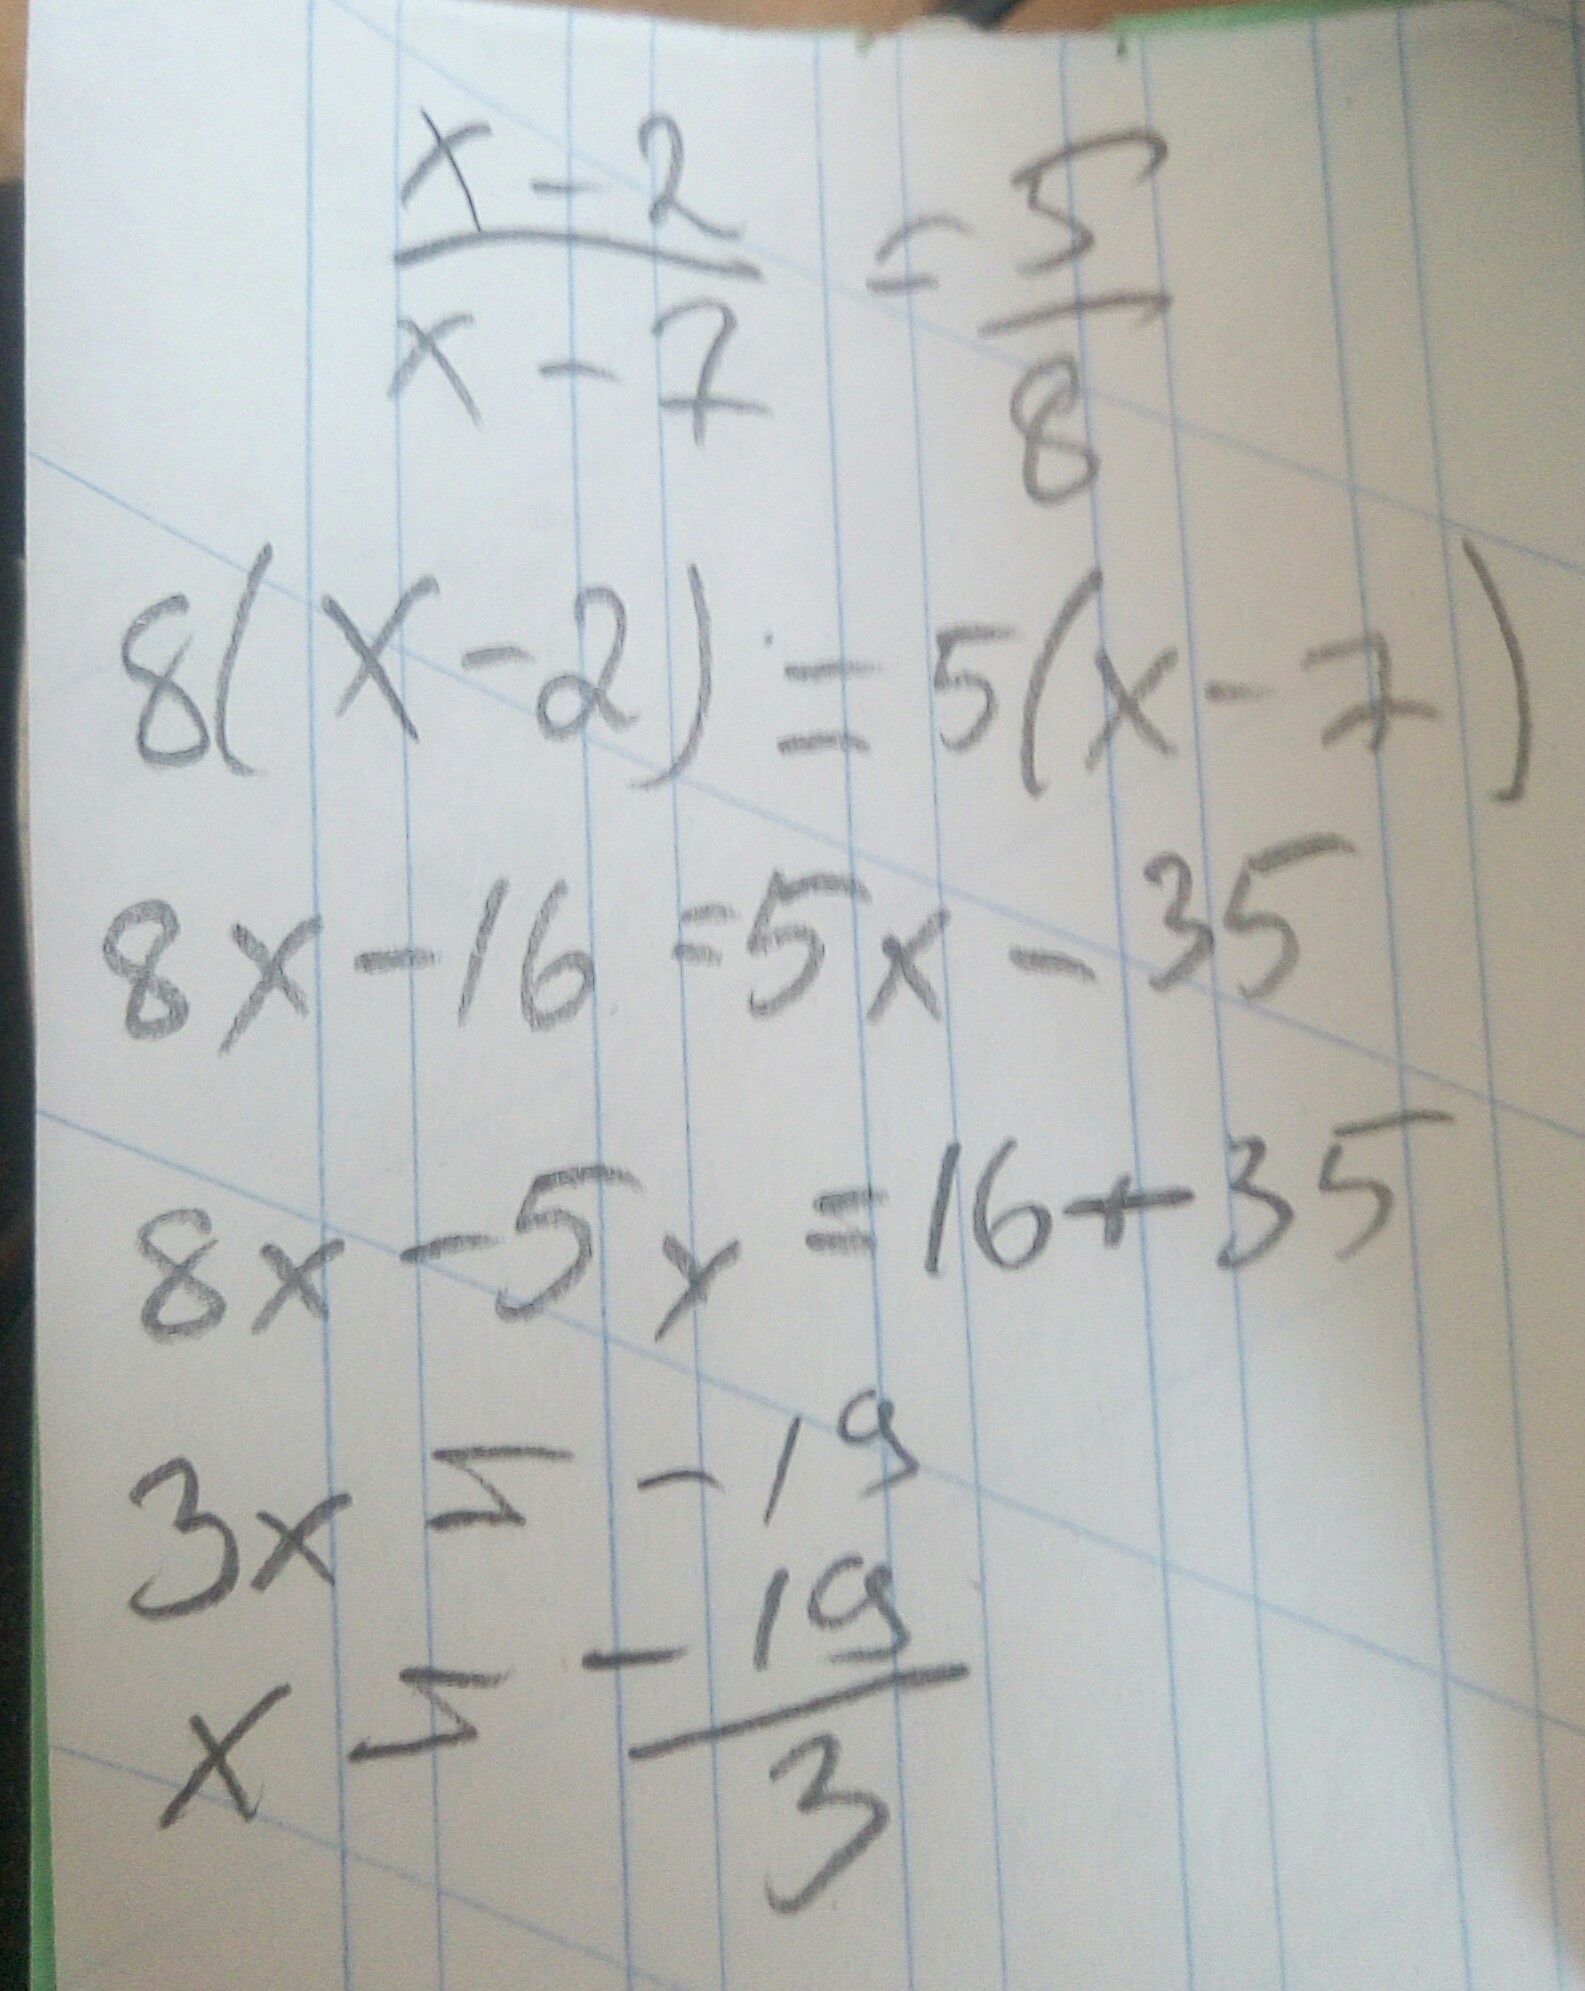 x - 2 / x - 7 = 5 / 8
8(x - 2) = 5(x - 7)
8x - 16 = 5x - 35
8x - 5x = 16 + 35
3x = -19
x = -19 / 3